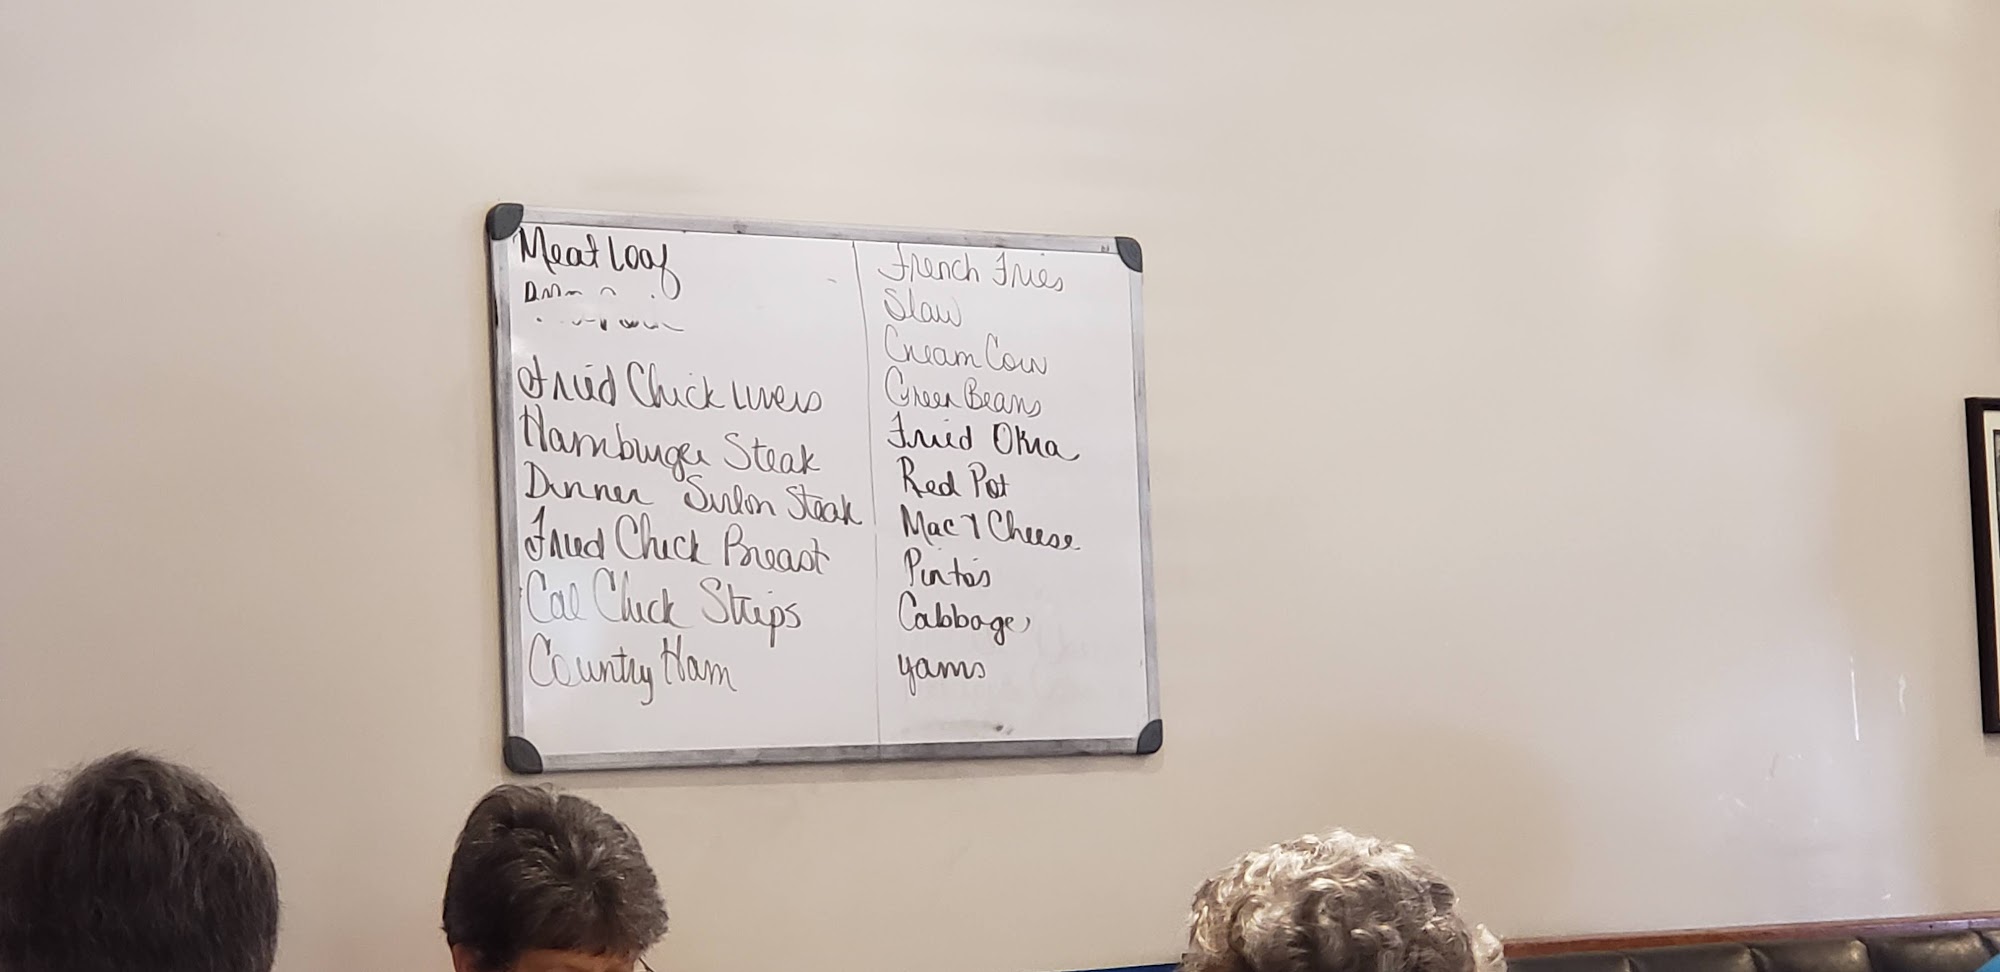 Meat Loaf
Fried Chick Livers
Hamburger Steak
Dinner Sirlon Steak
Fried Chick Breast
Cal Chick Strips
Country Ham
French Fries
Slaw
Cream Corn
Green Beans
Fried Okra
Red Pot
Mac & Cheese
Pintos
Cabbage
yams